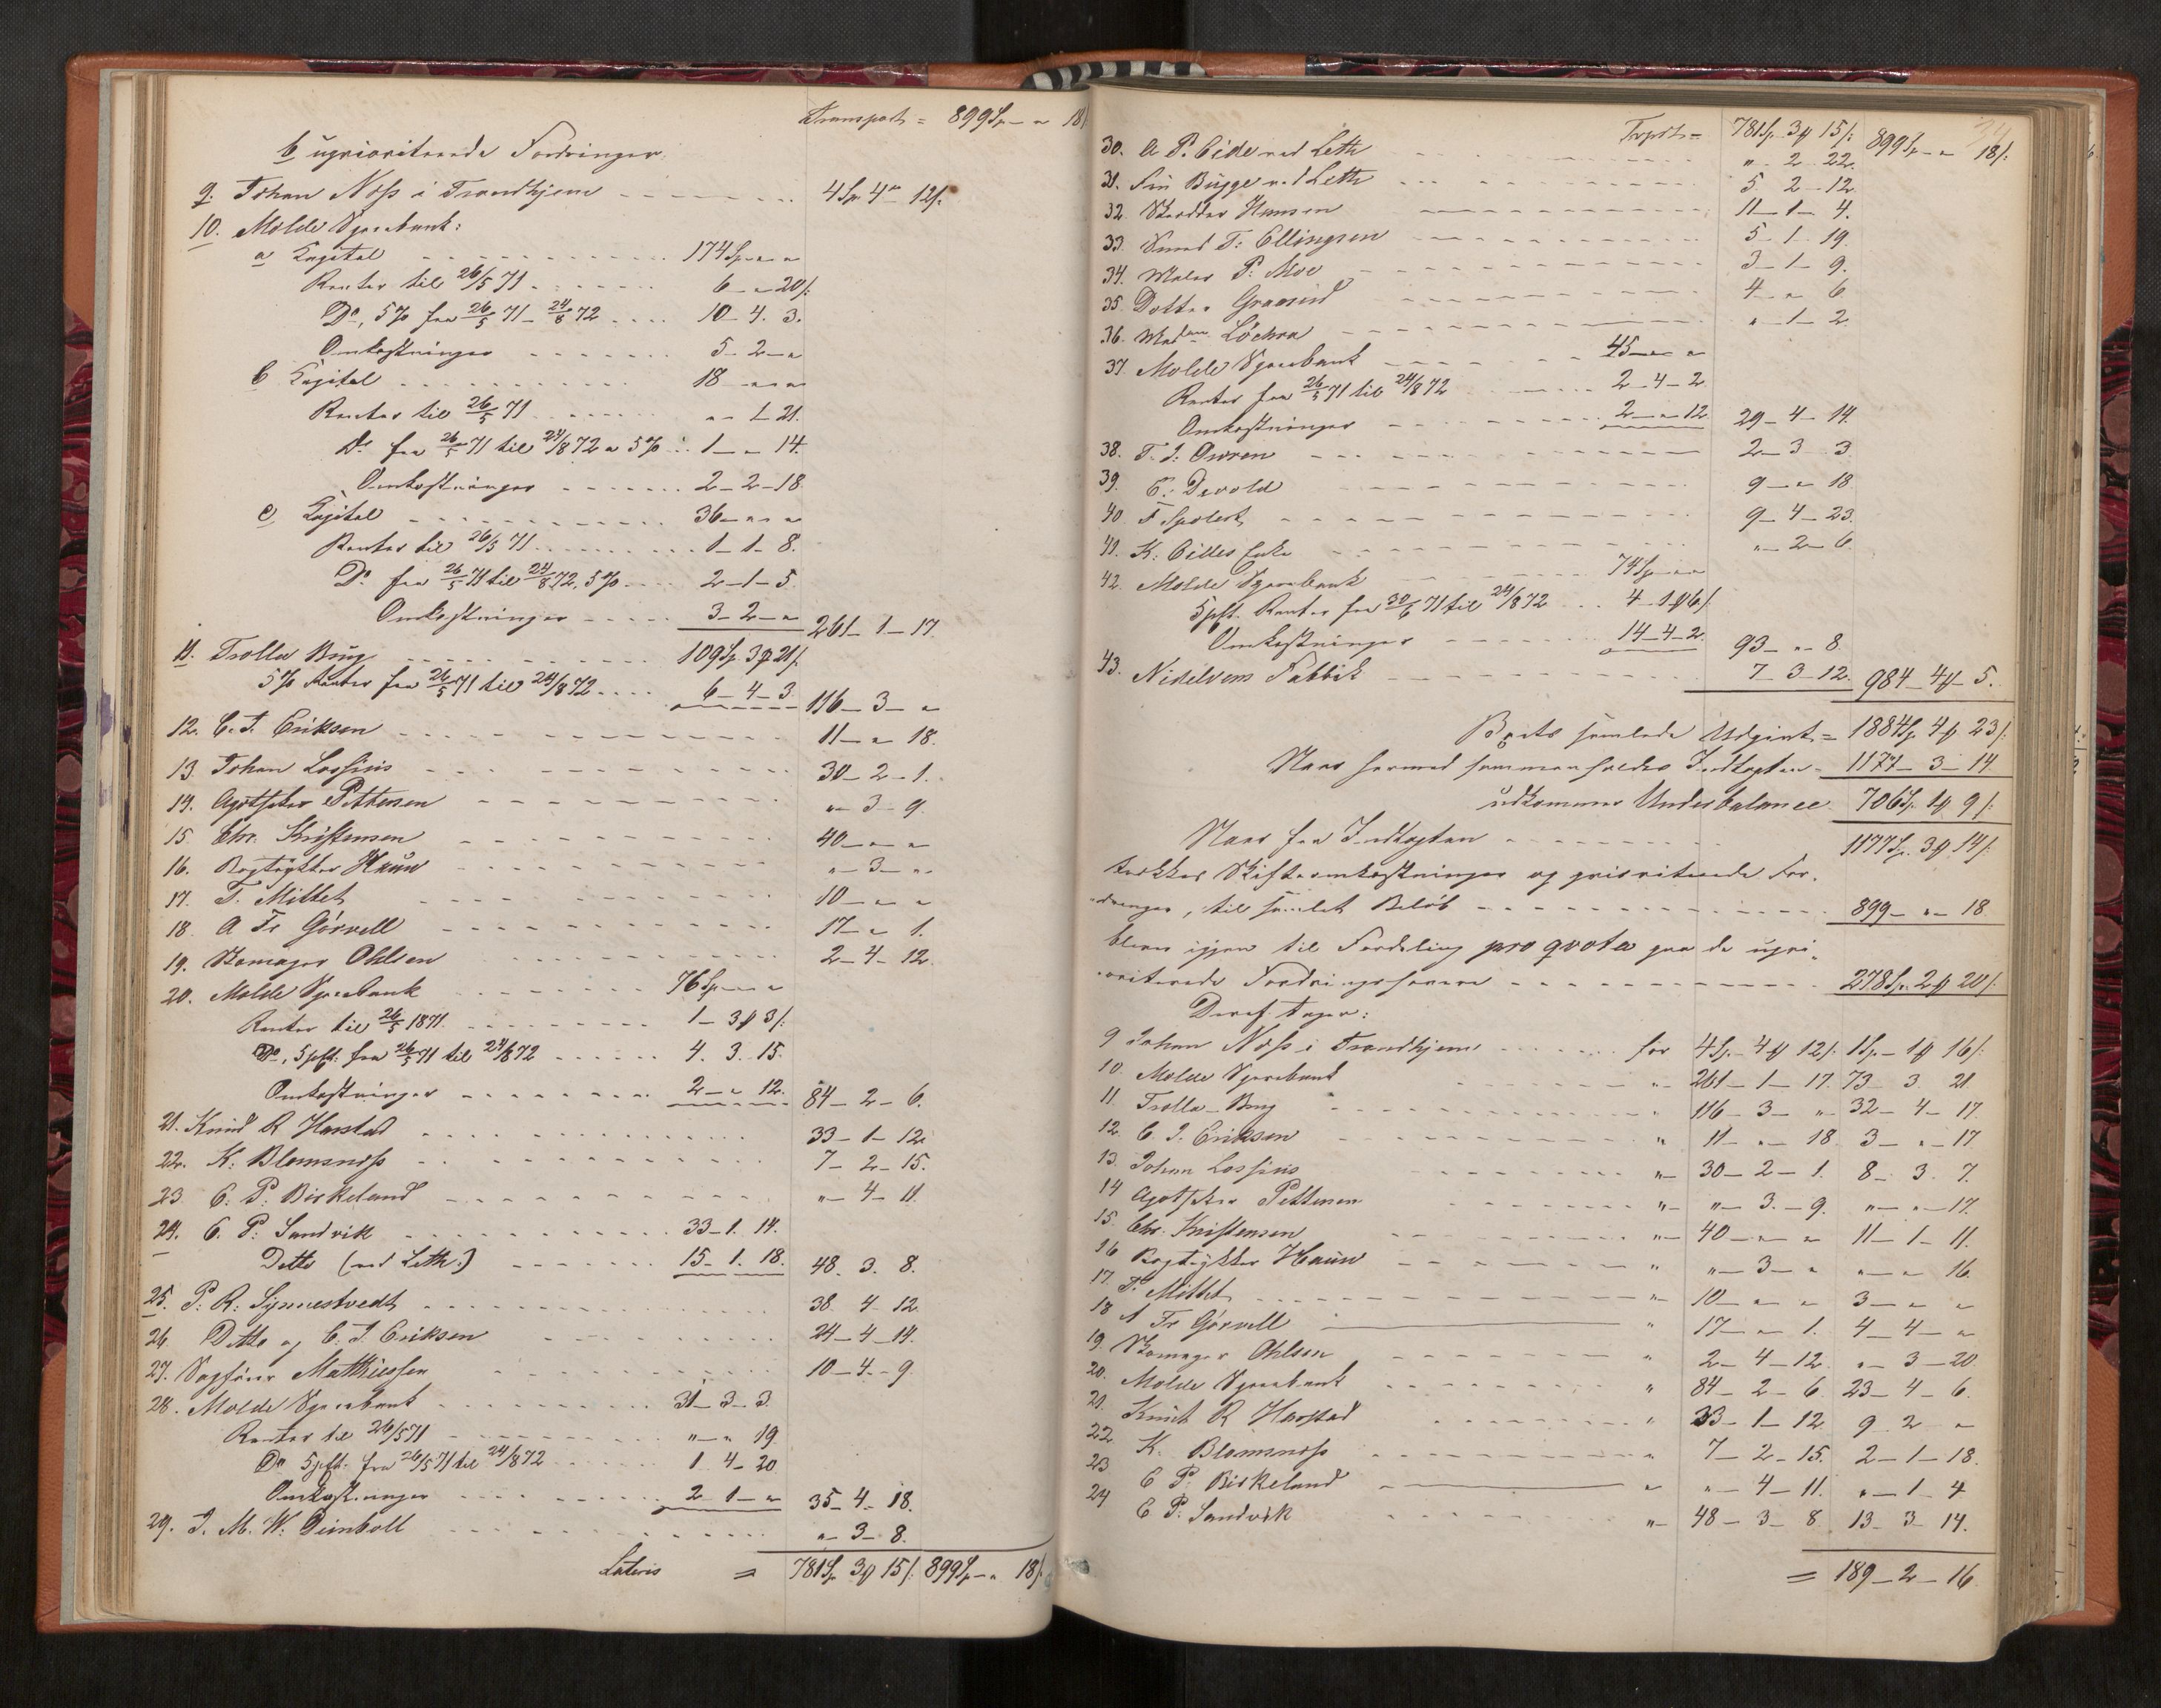 Transport = 899 Sp - " 18
b uprioriterede Fordringer:
9. Johan Næss i Trondhjem - - - 4 Sp 4 " 12 s.
10. Molde Sparebank:
a Kapital - - - 174 Sp " "
Renter til 26/5 71 - - - 6 - " 20 s.
Do, 5% fra 26/5 71 - 24/8 72 - - - 10 - 4. 3.
Omkostninger - - - 5 - 2 - "
b Kapital - - - 18 - " "
Renter til 26/5 71 - - - " - 1 - 21.
Do fra 26/5 71 til 24/8 72 a 5% - - - 1 - " 14.
Omkostninger - - - 2 - 2 - 18
c Kapital - - - 36 - " - "
Renter til 26/5 71 - - - 1 - 1 - 8.
Do fra 26/5 71 til 24/8 72, 5% - - - 2 - 1 - 5.
Omkostninger - - - 3 - 2 - " 261 - 1 - 17.
11. Trolla Brug - - - 109 Sp 3 # 21 s.
5% Renter fra 26/5 71 til 24/8 72 - - - 6 - 4 - 3. 116 - 3 - "
12. C. J. Eriksen - - - 11 - " 18.
13. Johan Lossius - - - 30 - 2 - 1.
14. Agotheker Pettersen - - - " - 3 - 9.
15 Chr. Kristensen - - - 40 - " - "
16. Bogtrykker Hauw - - - " - 3 - "
17. T. Mittet - - - 10 - " "
18 A Fr Görvell - - - 17 - " 1.
19. Skomager Ohlsen - - - 2 - 4 - 12.
20. Molde Sparebank - - - 76 Sp - " "
Renter til 26/5 1871 - - - 1 - 3 # 3 s.
Do, 5 pCt. fra 26/5 71 til 24/8 72 - - - 4. 3. 15.
Omkostninger - - - 2 - " 12. 84 - 2 - 6.
21. Knud R Harstad - - - 33 - 1 - 12.
22. K. Blomsnæss - - - 7 - 2 - 15.
23 E. P. Birkeland - - - " - 4 - 11.
24. E. P. Sandvik - - - 33 - 1. 14.
Ditto (ved Leth.) - - - 15 - 1. 18. 48. 3. 8.
25. P. R. Synnestvedt - - - 38 4 - 12.
26 Ditto og C. J. Eriksen - - - 24 - 4 - 14.
27. Sagfører Mathiesen - - - 10 - 4 - 9.
28. Molde Sparebank - - - 31 - 3 - 3.
Renter til 26/5 71 - - - " - " 19.
Do 5 pCt. fra 26/5 71 til 24/8 72 - - - 1. 4 - 20
Omkostninger - - - 2 - 1 - " 35 - 4 - 18.
29. J. M. W. Deinboll - - - " - 3 - 8.
Lateris = 781 Sp 3 # 15 s. 899 Sp - " 18 s.
Trprt = 781 Sp 3 # 15 s. 899 Sp - " 18 s.
30. A P. Eide ved Leth - - - " 2 22.
31. Fru Bugge ved Leth - - - 5 2 - 12
32. Skredder Hansen - - - 11 - 1 - 4.
33. Smed T. Ellingsen - - - 5 - 1 - 19.
34. Maler P. Moe - - - 3 - 1 - 9.
35. - - - 4 - " 6
36. Madam Löchra - - - " - 1 - 2
37. Molde Sparebank - - - 45 - " "
Renter fra 26/5 71 til 24/8 72 - - - 2 - 4 - 2.
Omkostninger - - - 2 - " 12. 29 - 4 - 14.
38. T. J. Owren - - - 2 - 3 3
39. C. Devold - - - 9 - " 18
40. F Spolert - - - 9 - 4 - 23.
41. K. Eilles Enke - - - " - 2 - 6.
42. Molde Sparebank - - - 74 Sp - " "
5 pCt. Renter fra 30/6 71 til 24/8 72 - - - 4 - 1 # 6 s.
Omkostninger - - - 14 - 4 - 2. 93 - " - 8
43. Nidelvens Fabrik - - - 7 - 3 - 12. 984 - 4 # - 5.
Boets samlede Udgivt = 1884 Sp 4 # 23 s.
Naar hermed sammenholdes Indtægten - 1177 - 3 - 14.
udkommer Underbalance 706 Sp 1 # 9 s.
Naar fra Indtægten - - - 1177 Sp. 3 # 14 s.
trækkes Skifteomkostninger og prioriterede For-
dringer, til samlet Beløb - - - 899 - " - 18.
bliver igjen til Fordeling pro qvota paa de upri-
oriterede Fordringshavere - - - 278 Sp. 2 # 20 s.
Deraf tager:
9 Johan Næss i Trondhjem - - - for 4 Sp. - 4 # 12 s. 1 Sp. - 1 # 16 s.
10. Molde Sparebank - - - " 261 - 1 - 17. 73 - 3. 21
11. Trolla - Brug - - - " 116 - 3 - " - 32 - 4 - 17.
12. C. J. Eriksen - - - " 11 - " - 18. 3 - " - 17
13. Johan Lossius - - - " 30 - 2 - 1. 8 - 3. 7.
14 Agotheker Pettersen - - - " " - 3. - 9. " - " - 17.
15. Chr. Kristensen - - - " 40 - " " 11 - 1 - 11.
16 Bogtrykker Hauw - - - " " - 3 - " " - " 16.
17. T. Mittet - - - " 10 - " " 3 - " "
18 A Fr Görvell - - - " 17 - " 1. 4 - 4 - "
19. Skomager Ohlsen - - - " 2 - 4 - 12. " - 3 - 20.
20. Molde Sparebank - - - " 84 - 2 - 6. 23 - 4 - 6.
21. Knut R Harstad - - - " 33 - 1 - 12. 9. 2 - "
22 K. Blomsnæss - - - " 7 - 2 - 15. 2 - 1 - 18.
23 E P. Birkeland - - - " " - 4 - 11. " - 1 - 4
24 E P. Sandvik - - - " 48 - 3 - 8. 13 - 3 - 14.
= 189 - 2 - 16